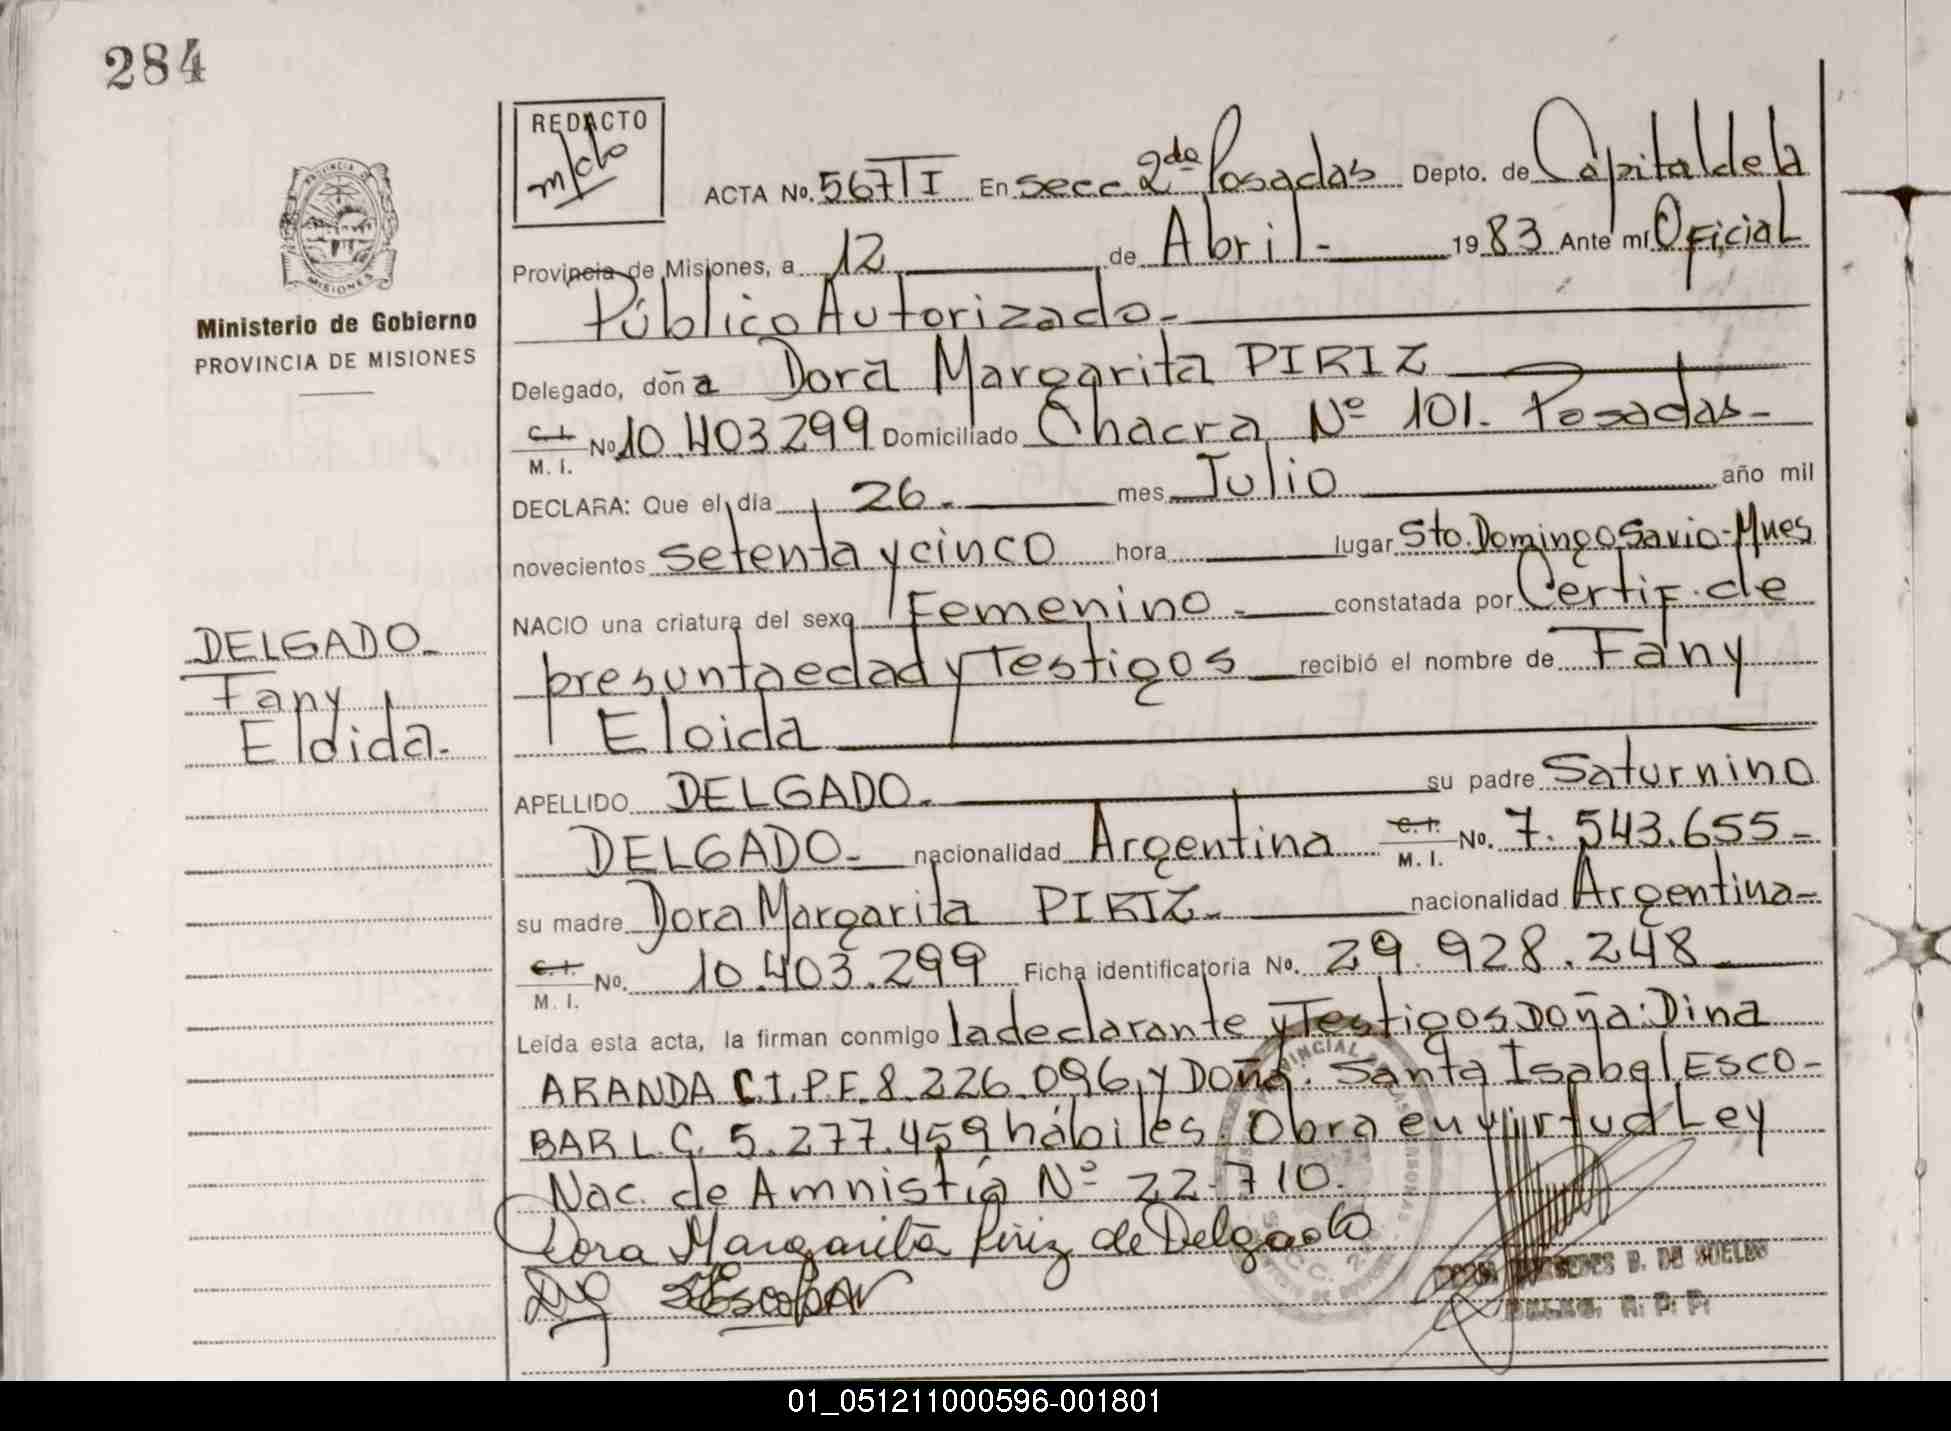 284
REDACTO
ACTA No. 567 T I En secc 2da Posadas Depto. de Capital de la
Provincia de Misiones, a 12 de Abril - 1983 Ante mí Oficial
Público Autorizado -
Ministerio de Gobierno
PROVINCIA DE MISIONES
Delegado, doña Dora Margarita PIRIZ
C. I. M. I. No 10.403.299 Domiciliado Chacra Nº 101. Posadas-
DECLARA: Que el día 26- mes Julio año mil
novecientos setenta y cinco hora lugar Sto. Domingo Savio-Mnes
NACIO una criatura del sexo Femenino - constatada por Certif. de
presunta edad y Testigos recibió el nombre de Fany
Eloida
DELGADO-
Fany
Eloida-
APELLIDO DELGADO- su padre Saturnino
DELGADO- nacionalidad Argentina C. I. M. I. No. 7.543.655=
su madre Dora Margarita PIRIZ- nacionalidad Argentina-
C. I. M. I. No. 10.403.299 Ficha identificatoria No. 29.928.248
Leída esta acta, la firman conmigo la declarante y Testigos Doña: Dina
ARANDA C.I.P.F. 8.226.096, y Doña: Santa Isabel ESCO-
BAR L.C. 5.277.459 hábiles. Obra en virtud Ley
Nac. de Amnistía Nº 22.710.
Dora Margarita Piriz de Delgado
Escobar
01_051211000596-001801